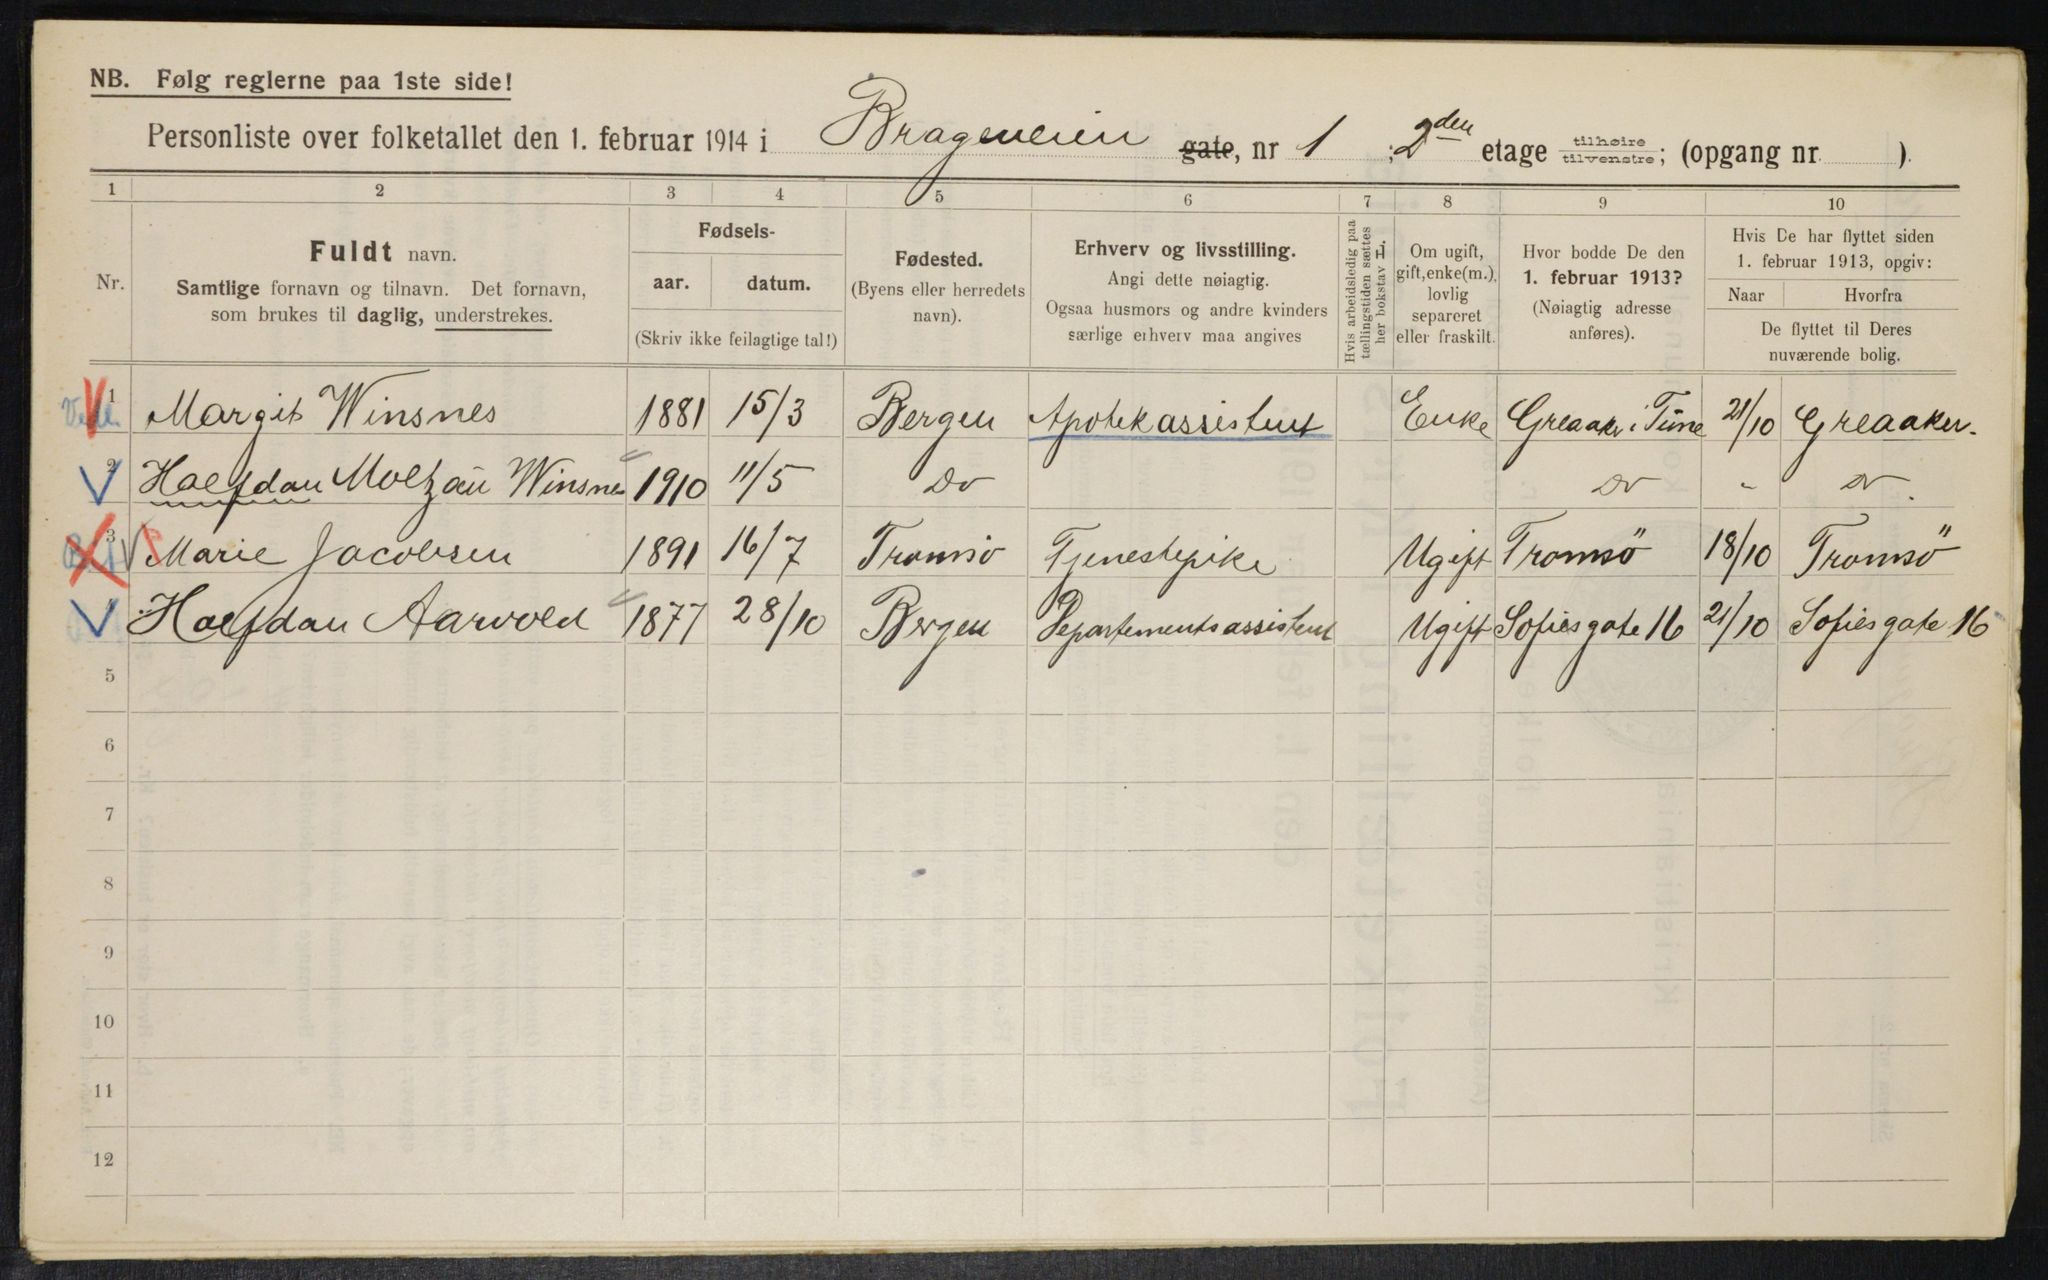 NB. Følg reglerne paa 1ste side!
Personliste over folketallet den 1. februar 1914 i Brageveien gate, nr 1 ; 2den etage tilhøire tilvenstre; (opgang nr. ).
1 2 3 4 5 6 7 8 9 10
Nr.
Fuldt navn.
Samtlige fornavn og tilnavn. Det fornavn,
som brukes til daglig, understrekes.
Fødsels-
aar. datum.
(Skriv ikke feilagtige tal!)
Fødested.
(Byens eller herredets
navn).
Erhverv og livsstilling.
Angi dette nøiagtig.
Ogsaa husmors og andre kvinders
særlige erhverv maa angives
Hvis arbeidsledig paa
tællingstiden sættes
her bokstav L.
Om ugift,
gift, enke(m.),
lovlig
separeret
eller fraskilt.
Hvor bodde De den
1. februar 1913?
(Nøiagtig adresse
anføres).
Hvis De har flyttet siden
1. februar 1913, opgiv:
Naar Hvorfra
De flyttet til Deres
nuværende bolig.
1 Margit Winsnes 1881 15/3 Bergen Apotekassistent Enke Greaaker i Tune 21/10 Greaaker.
2 Halfdan Moltzau Winsnes 1910 11/5 Do Do " Do.
3 Marie Jacobsen 1891 16/7 Tromsö Tjenestepike Ugift Tromsö 18/10 Tromsö
Halfdan Aarvold 1877 28/10 Bergen Departementsassistent Ugift Sofies gate 16 21/10 Sofies gate 16
5
6
7
8
9
10
11
12